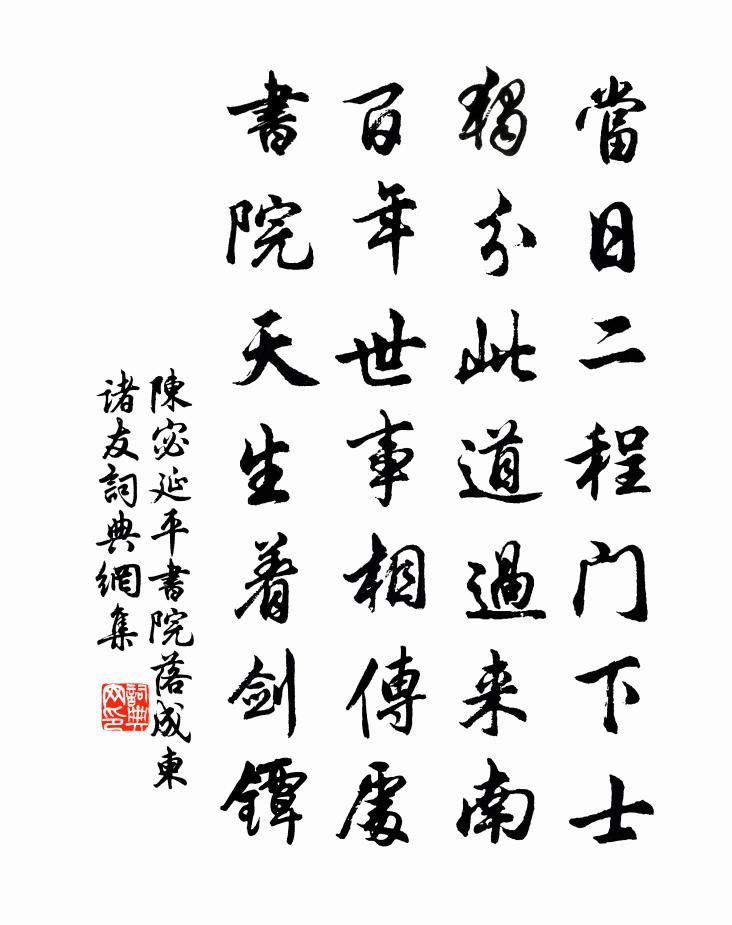 當日二程门下士
獨分此道過来南
百年世事相傳處
書院天生着劍鐔
陳宓延平書院落成東
诸友詞典網集
詞典网印